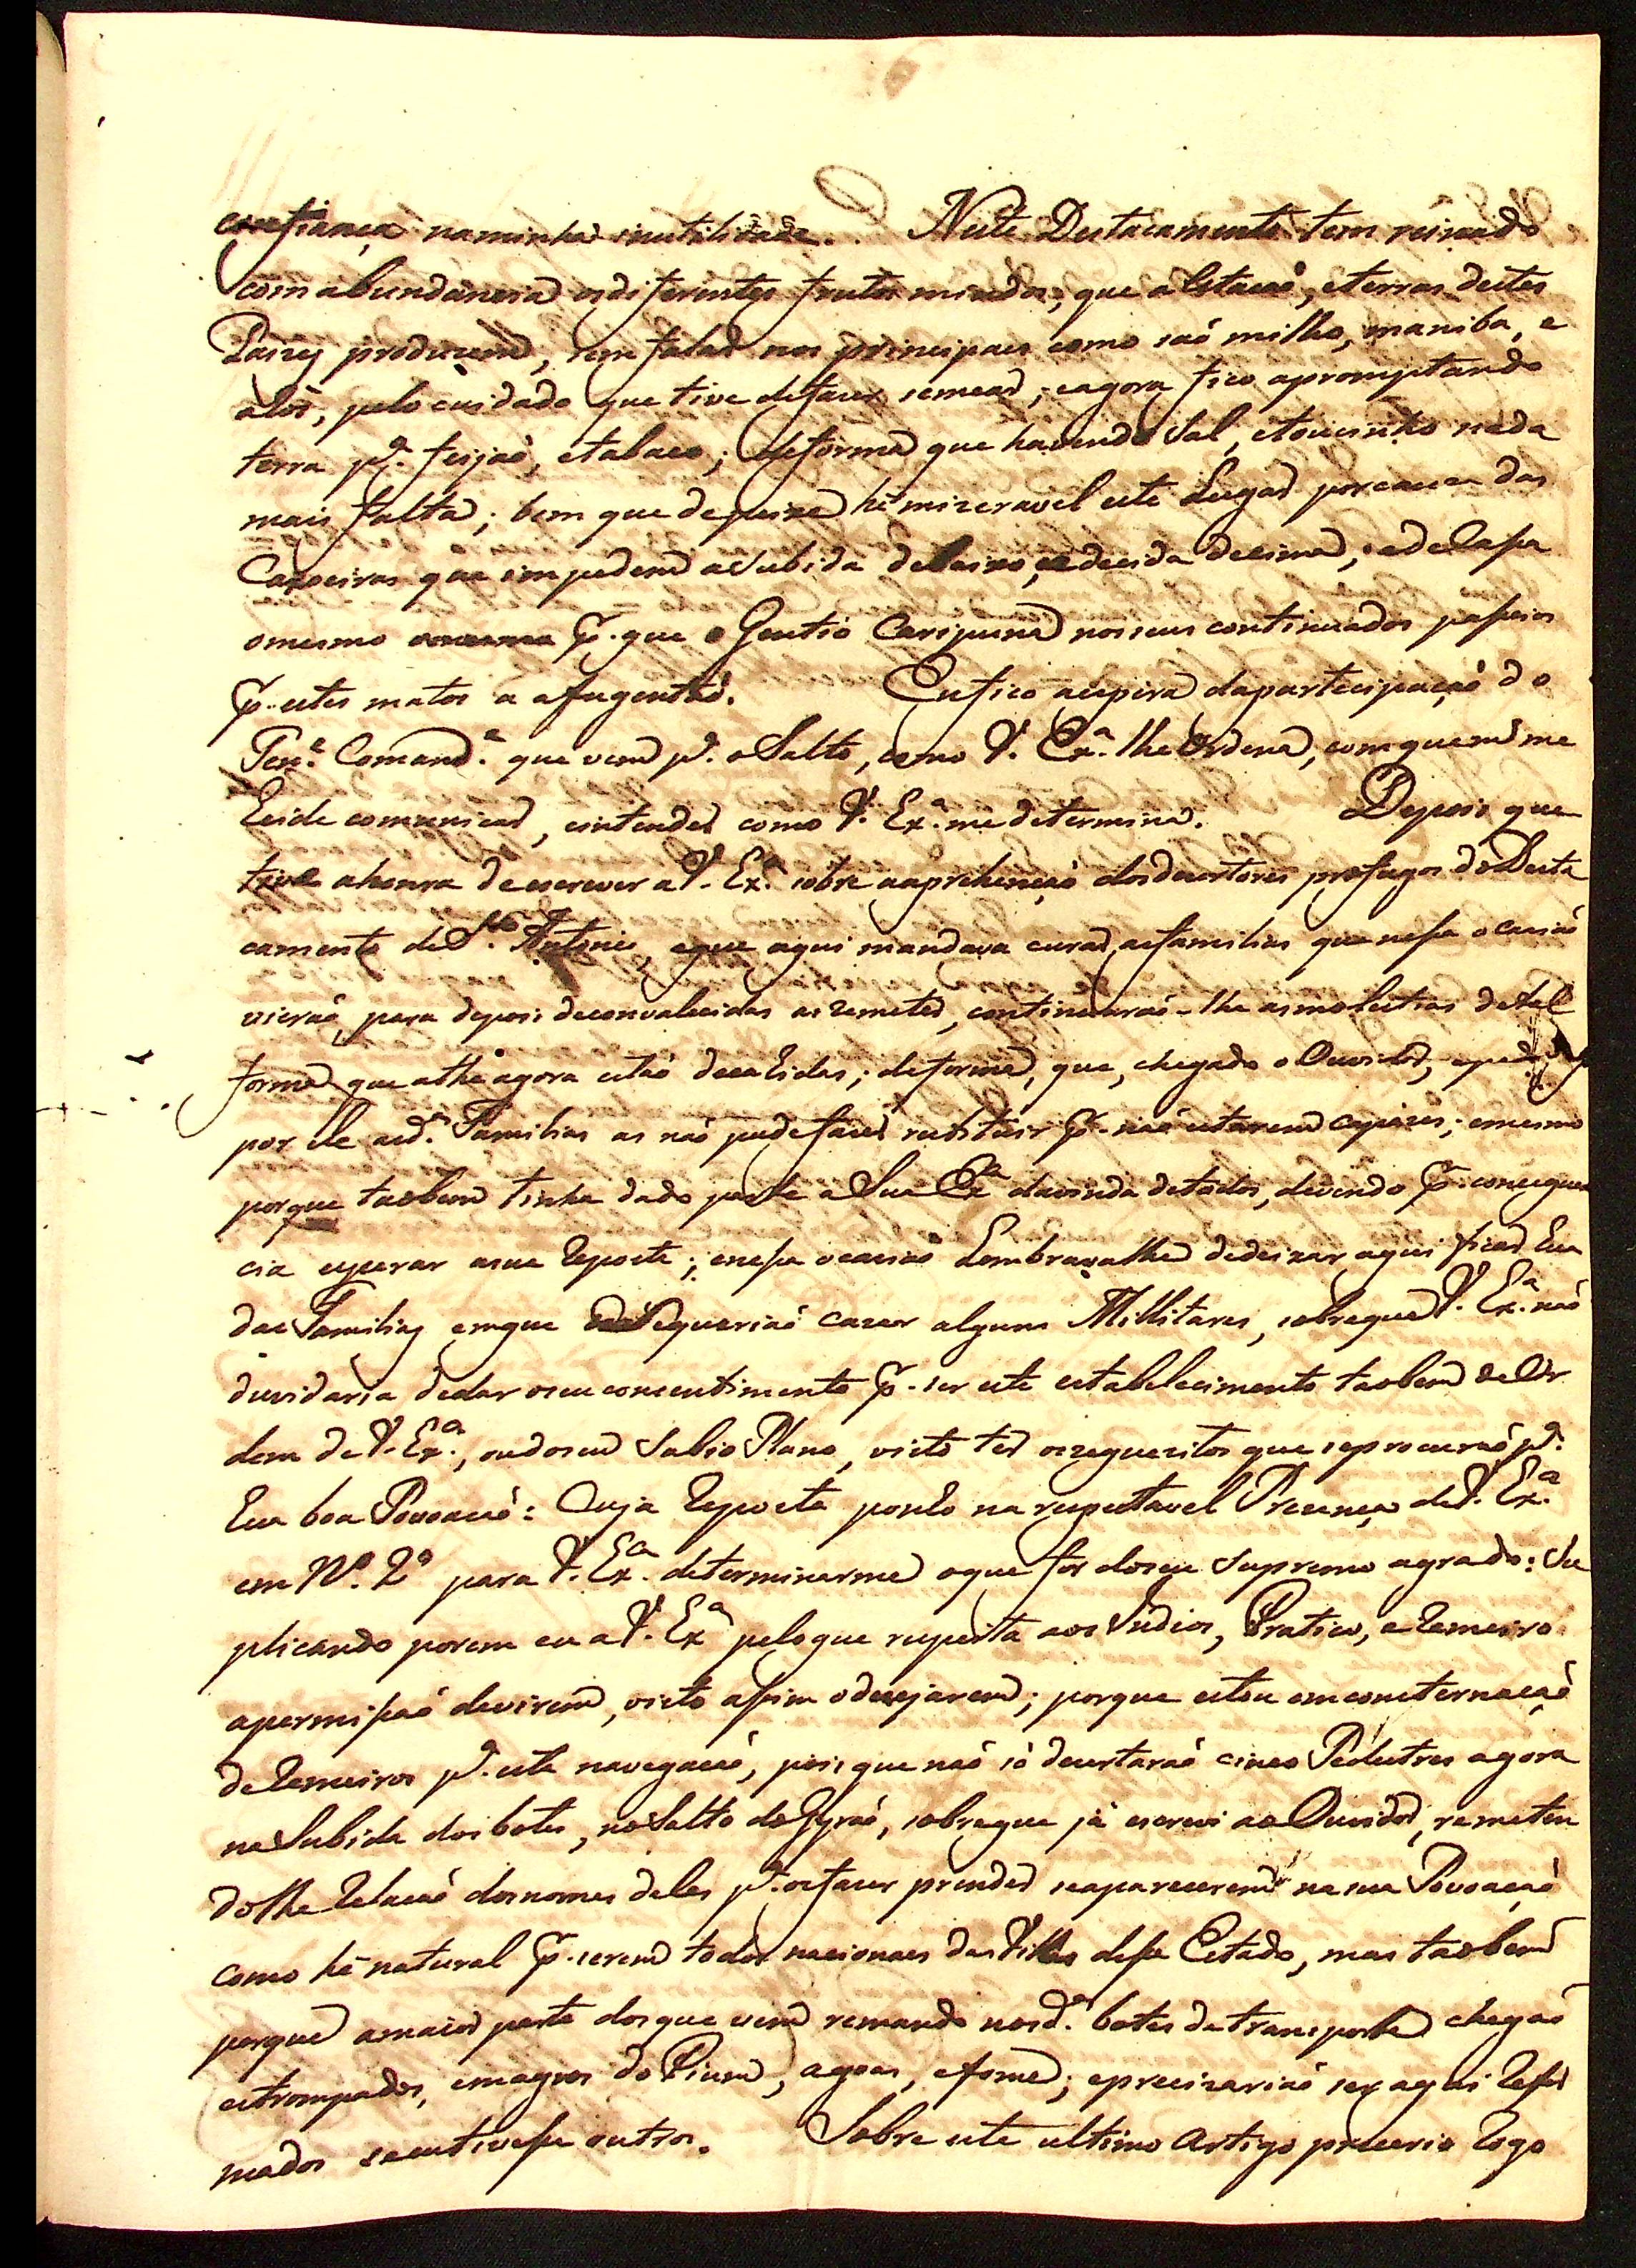 confiança na minha inutilidade. Neste Destacamento tem reinado
com abundancia os diferentes frutos miudos, que a Estaçaõ, e terras destes
Paizes produzem, sem falar nos principaes como saõ milho, maniba, e
alòs, pelo cuidado que tive de fazer semear; e agora fico apromptando
terra pª. feijaõ, e tabaco; de forma que havendo Sal, e toucinho nada
mais falta; bem que de peixe hé mizeravel este Lugar por cauza das
Caxoeiras que impedem a subida debaixo, e decida decima; e de Cassa
o mesmo p. que o Gentio Caripuna nos seus continuados passeios
p. estes matos a afugentaõ. Eu fico a espera da partecipaçaõ do
Tenᵉ. Comandᵉ. que vem pª. o Salto, como V. Exª. lhe Ordena, com quem me
heide comunicar, e entender como V. Exª. me determina. Depois que
tive a honra de escrever a V. Exª. sobre a aprehençaõ dos desertores profugos do Desta
camento de Sᵗᵒ. Antonio, e que aqui mandava curar as familias que nessa ocaziaõ
vieraõ, para depois de convalecidas as remeter, continuaraõ-lhe as molestias de tal
forma que athe agora estaõ decahidas; de forma, que, chegado o Ouvidor,
por ele as dªˢ. Familias as naõ pude fazer restituir p. naõ estarem capazes; e mesmo
porque taobem tinha dado parte a Sua Exª da vinda de todos, devendo p. conseguen
cia esperar a sua reposta; e nessa ocaziaõ Lembravalhe de deixar aqui ficar hua
das Familias em que requeriaõ cazar alguns Millitares, sobre que V. Exª. naõ
duvidaria de dar o seu consentimento p. ser este estabelecimento taobem de Or
dem de V. Exª., ou do seu Sabio Plano, visto ter os requezitos que se procuraõ pª.
hua boa Povoaçaõ: Cuja reposta ponho na respeitavel Prezença de V. Exª.
em Nº. 2º para V. Exª. determinarme o que for do seu Supremo agrado: Su
plicando porem eu a V. Exª pelo que respeita aos Indios, Pratico, e remeiro
a permissaõ de virem, visto assim o dezejarem; porque estou em consternaçaõ
de remeiros pª. esta navegaçaõ, pois que naõ só desertaraõ cinco Pedestres agora
na Subida dos botes, no Salto do Gyraõ, sobre que já escrevi ao Ouvidor, remeten
dolhe relaçaõ dos nomes deles pª. os fazer prender se aparecerem na sua Povoaçaõ
como hé natural p. serem todos nacionaes das Villas desse Estado, mas taobem
porque a maior parte dos que vem remando nos dºˢ. botes de transporte chegaõ
estrompados, e magros do Pium, agoas, e fome; e precizariaõ ser aqui refor
mados se eu tivesse outros. Sobre este ultimo Artigo precurio rogo